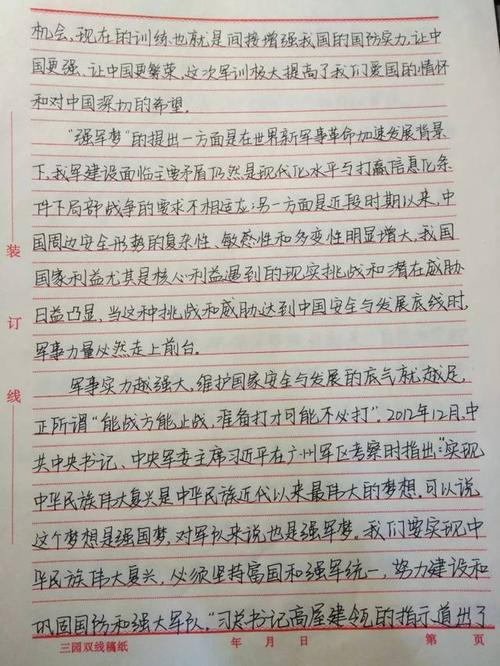 机会，现在的训练也就是间接增强我国的国防实力，让中
国更强、让中国更繁荣，这次军训极大提高了我们爱国的情怀
和对中国深切的希望。
"强军梦"的提出一方面是在世界新军事革命加速发展背景
下，我军建设面临主要矛盾仍然是现代化水平与打赢信息化条
件下局部战争的要求不相适应；另一方面是近段时期以来，中
国周边安全形势的复杂性、敏感性和多变性明显增大，我国
国家利益尤其是核心利益遇到的现实挑战和潜在威胁
日益凸显，当这种挑战和威胁达到中国安全与发展底线时，
军事力量必然走上前台。
军事实力越强大，维护国家安全与发展的底气就越足，
正所谓"能战方能止战，准备打才可能不必打"。2012年12月，中
共中央书记、中央军委主席习近平在广州军区考察时指出："实现
中华民族伟大复兴是中华民族近代以来最伟大的梦想。可以说
这个梦想是强国梦，对军队来说也是强军梦。我们要实现中
华民族伟大复兴，必须坚持富国和强军统一，努力建设和
巩固国防和强大军队。"习总书记高屋建瓴的指示，道出了
装
订
线
三园双线稿纸 年 月 日 第 页